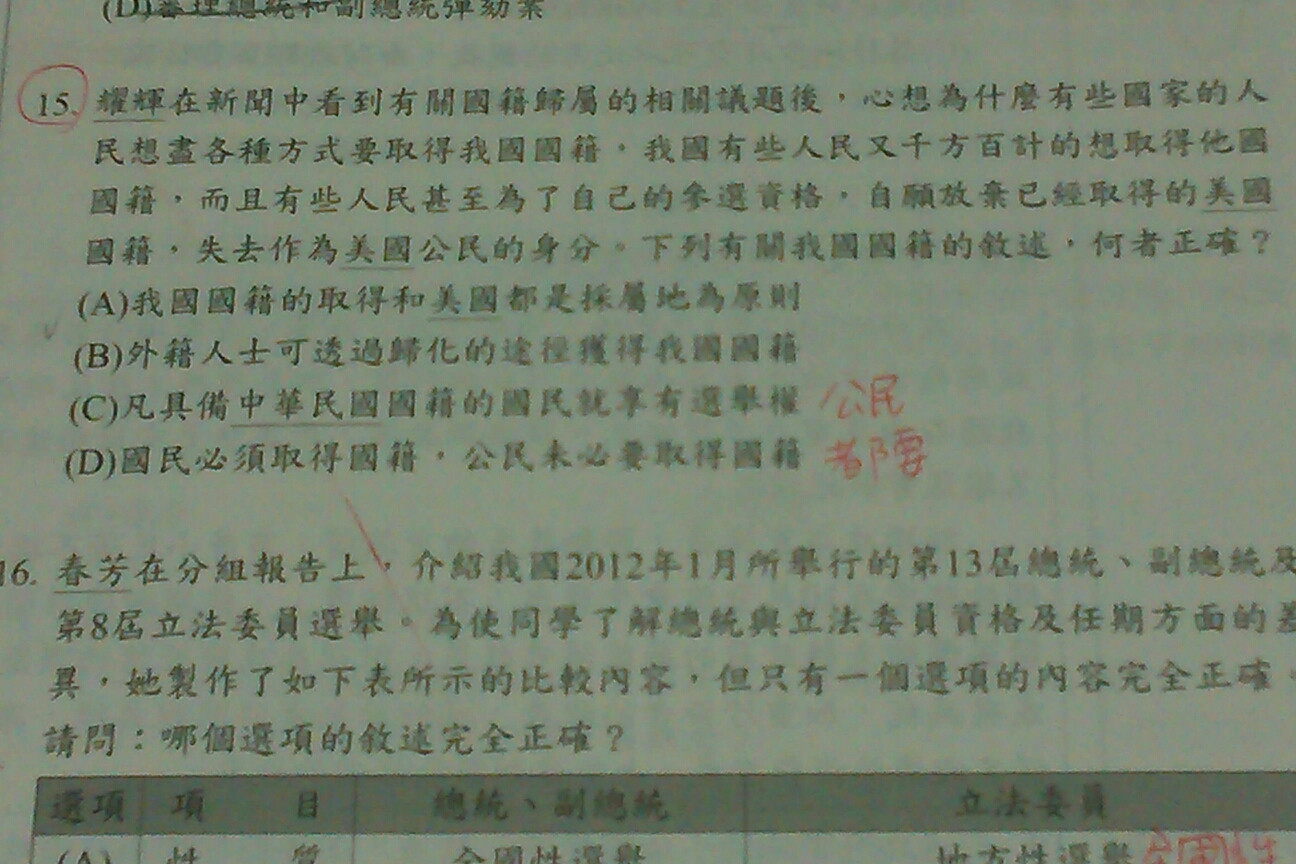 (D)審理總統和副總統彈劾案
15. 耀輝在新聞中看到有關國籍歸屬的相關議題後，心想為什麼有些國家的人
民想盡各種方式要取得我國國籍，我國有些人民又千方百計的想取得他國
國籍，而且有些人民甚至為了自己的參選資格，自願放棄已經取得的美國
國籍，失去作為美國公民的身分。下列有關我國國籍的敘述，何者正確？
(A)我國國籍的取得和美國都是採屬地為原則
(B)外籍人士可透過歸化的途徑獲得我國國籍
(C)凡具備中華民國國籍的國民就享有選舉權 公民
(D)國民必須取得國籍，公民未必要取得國籍 都要
16. 春芳在分組報告上，介紹我國2012年1月所舉行的第13屆總統、副總統及
第8屆立法委員選舉。為使同學了解總統與立法委員資格及任期方面的差
異，她製作了如下表所示的比較內容，但只有一個選項的內容完全正確。
請問：哪個選項的敘述完全正確？
選項 項 目 總統、副總統 立法委員
(A) 性 質 全國性選舉 地方性選舉 全國性